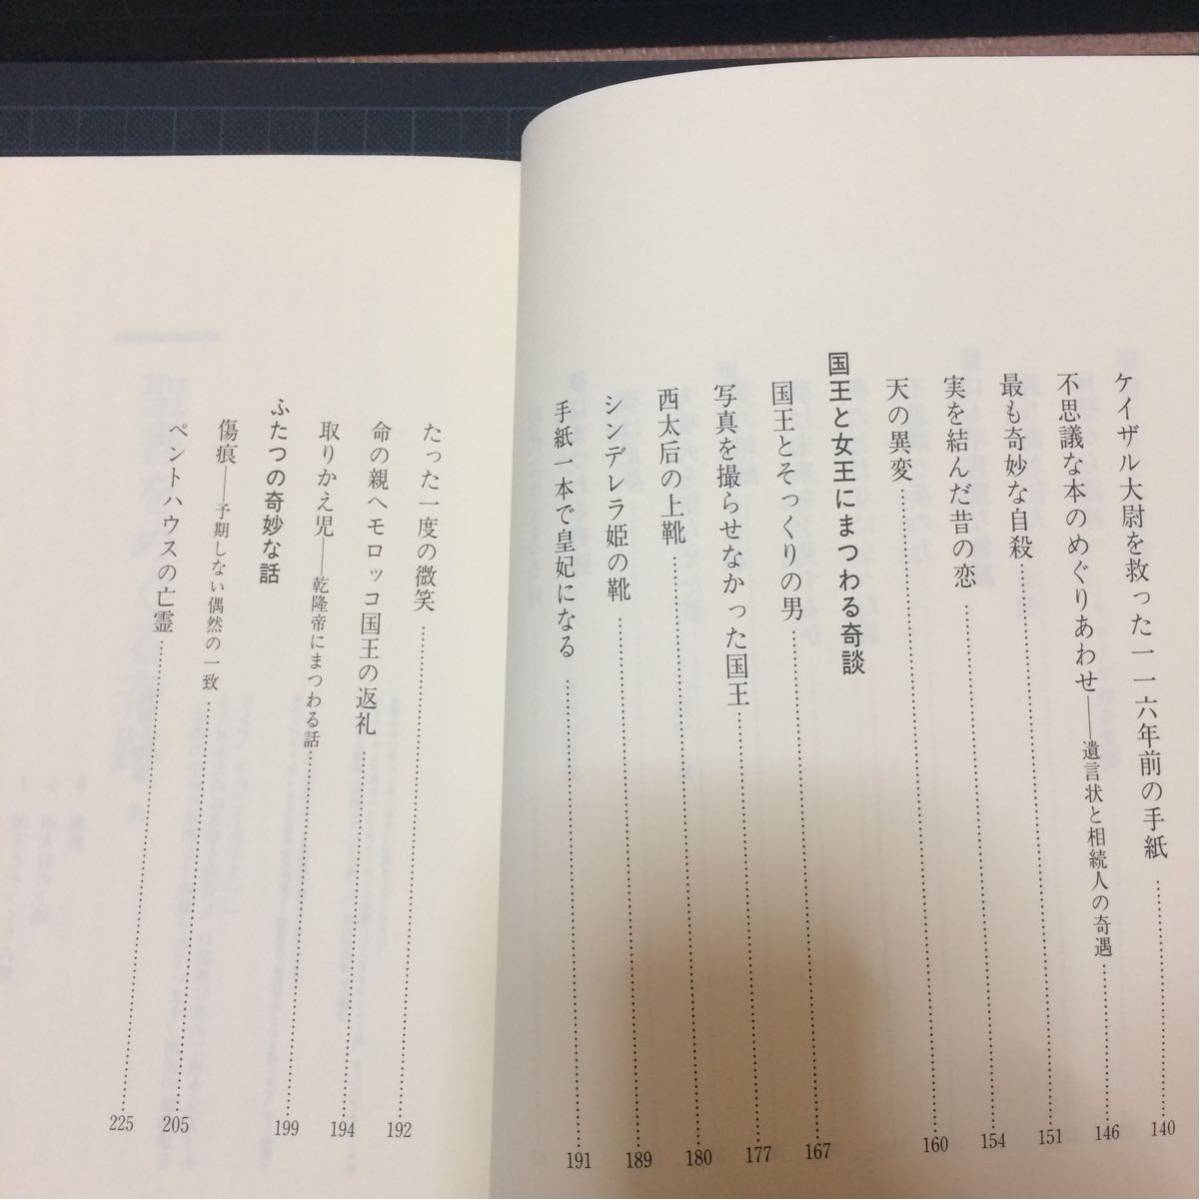 ケイザル大尉を救った一一六年前の手紙……140
不思議な本のめぐりあわせ――遺言状と相続人の奇遇……146
最も奇妙な自殺……151
実を結んだ昔の恋……154
天の異変……160
国王と女王にまつわる奇談
国王とそっくりの男……167
写真を撮らせなかった国王……177
西太后の上靴……180
シンデレラ姫の靴……189
手紙一本で皇妃になる……191
たった一度の微笑……192
命の親へモロッコ国王の返礼……194
取りかえ児――乾隆帝にまつわる話……199
ふたつの奇妙な話
傷痕――予期しない偶然の一致……205
ペントハウスの亡霊……225